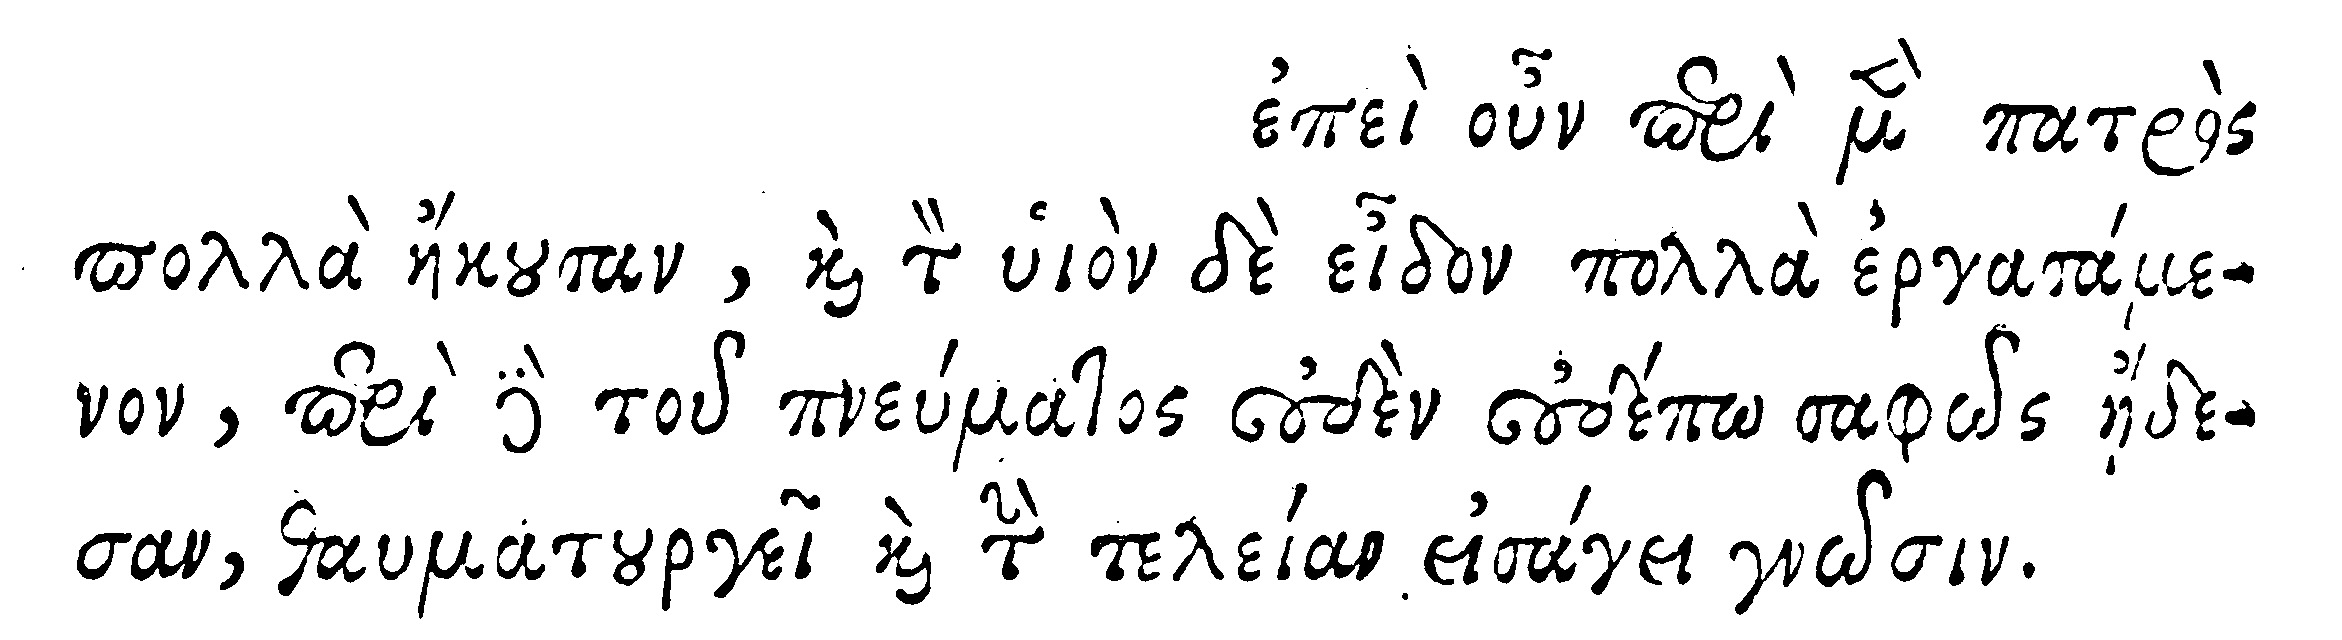 ἐπεὶ οὖν περὶ μὲν πατρὸς
πολλὰ ἤκουσαν, καὶ τὸν υἱὸν δὲ εἶδον πολλὰ ἐργασάμε-
νον, περὶ δὲ τοῦ πνεύματος οὐδὲν οὐδέπω σαφῶς ᾔδε-
σαν, θαυματουργεῖ καὶ τὴν τελείαν εἰσάγει γνῶσιν.